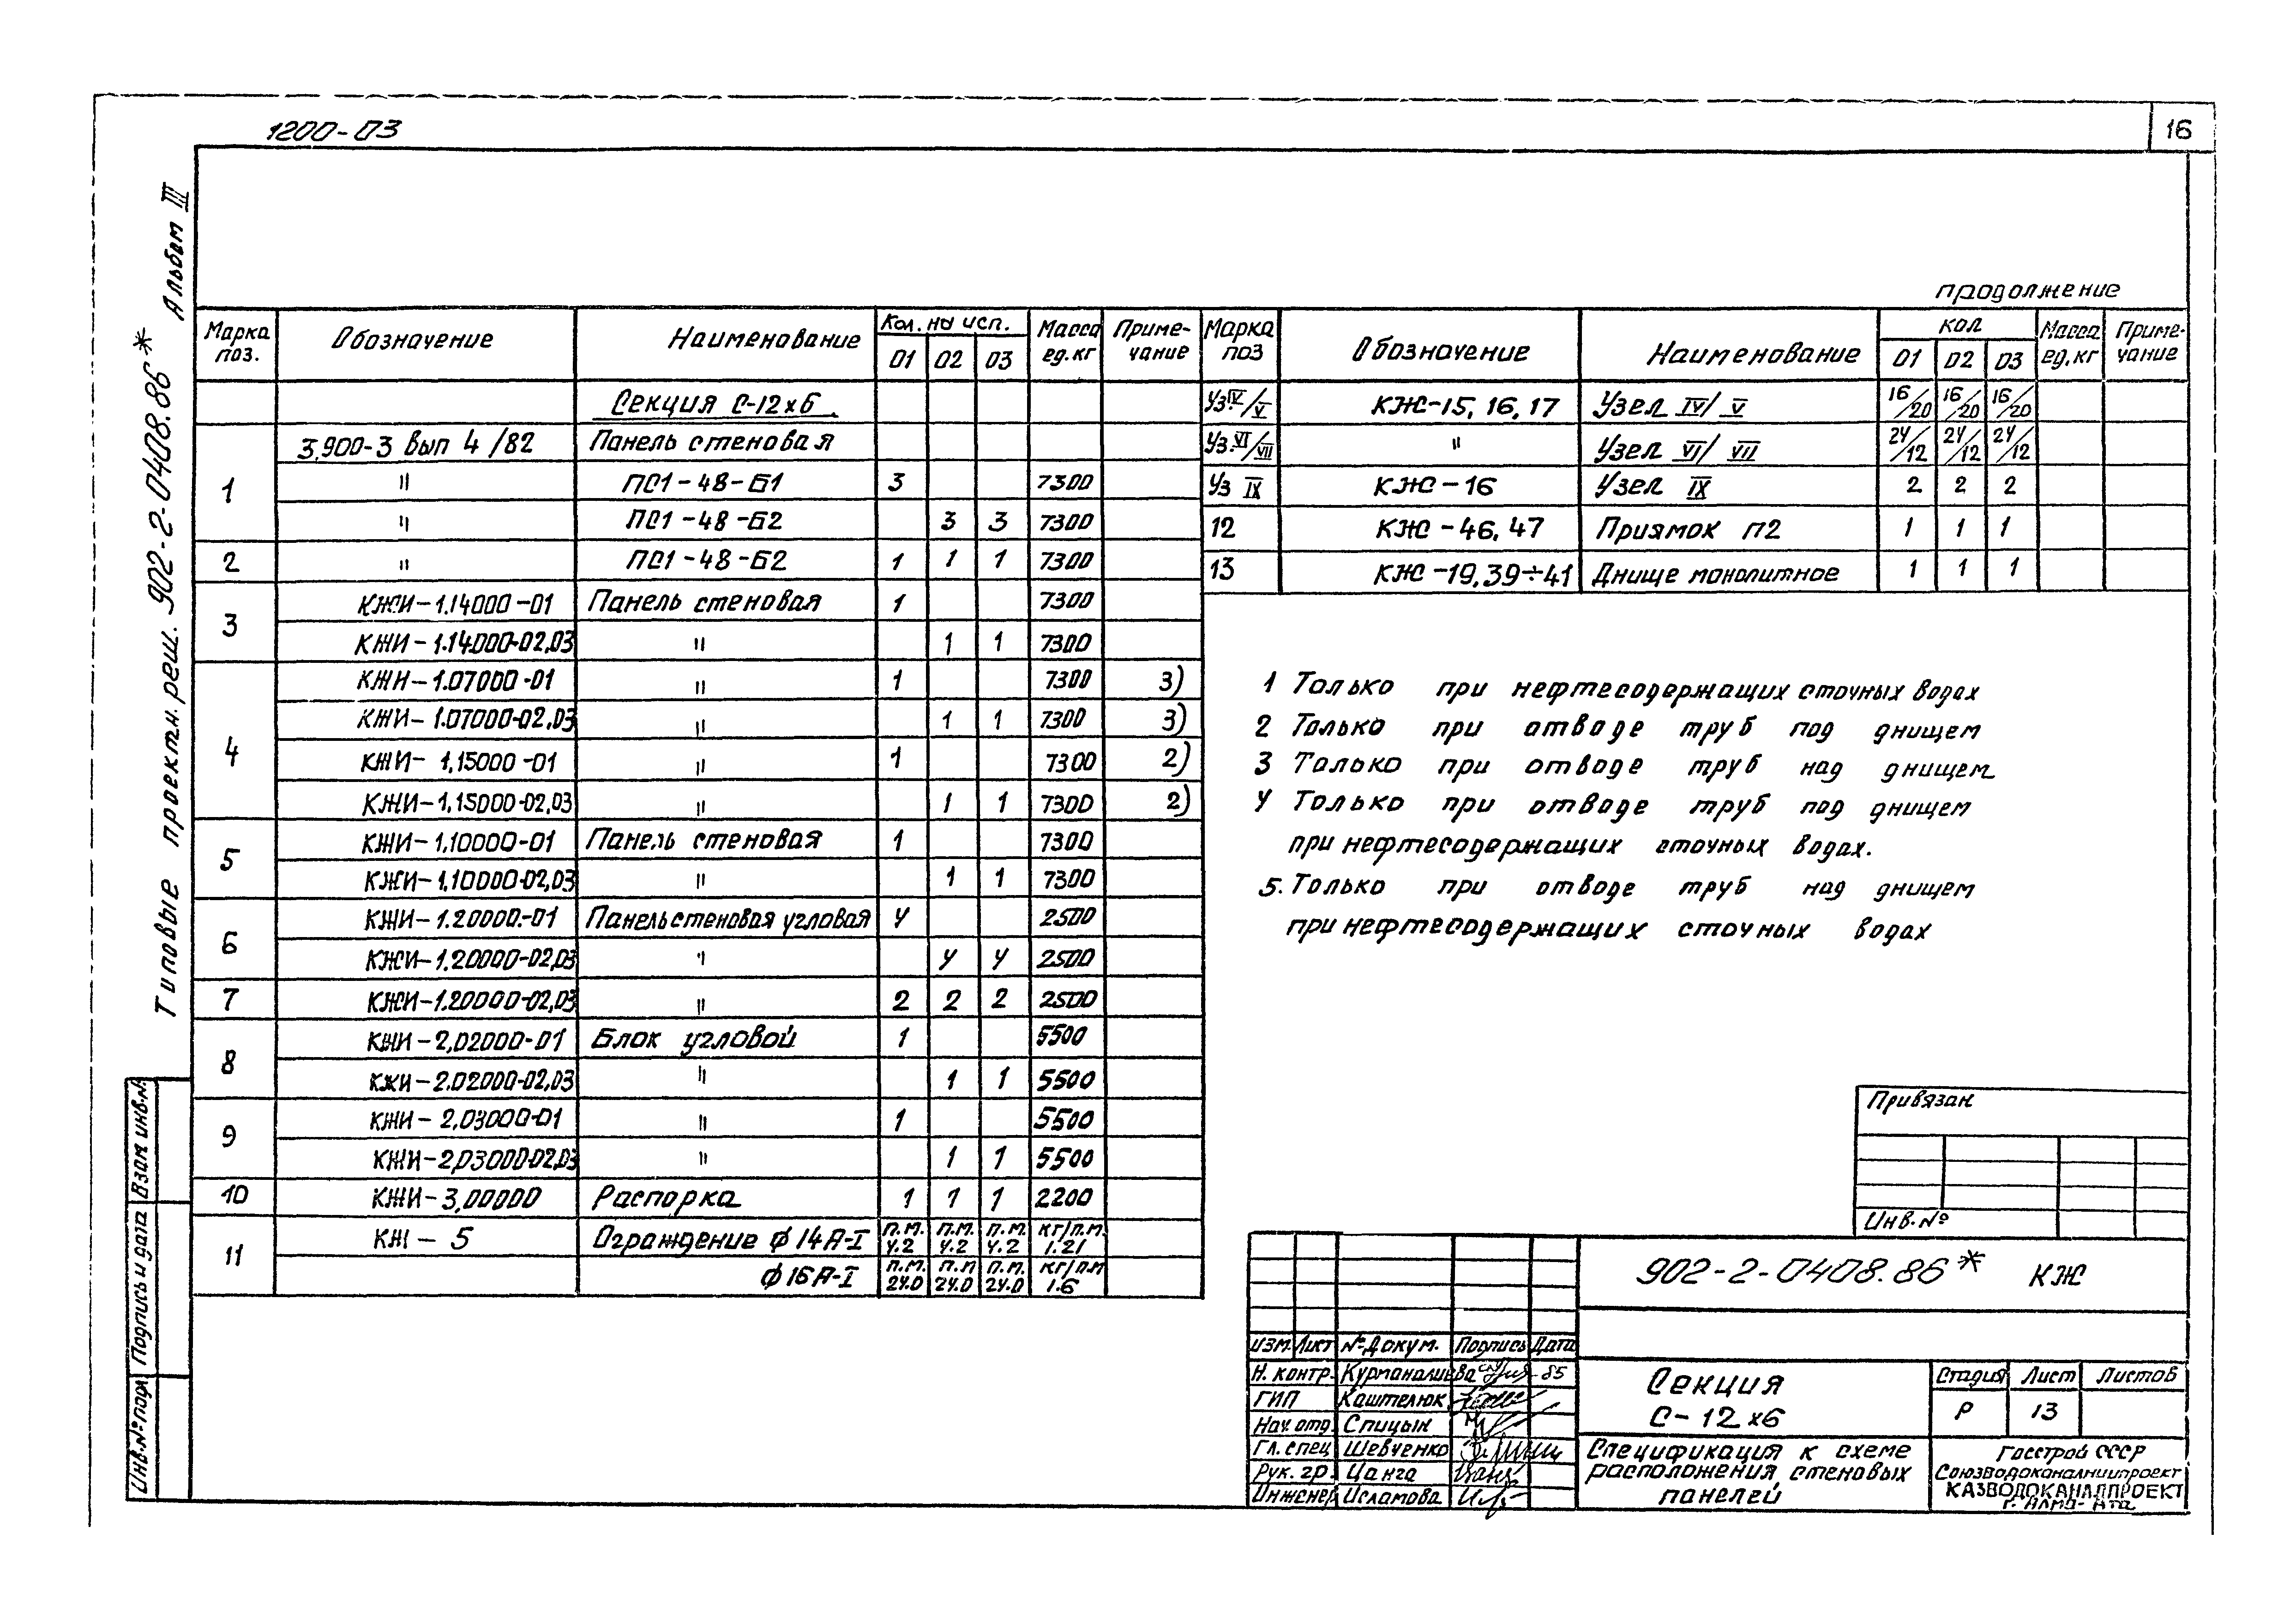 1200-03
16
Альбом III
Типовые проектн. реш. 902-2-0408.86*
продолжение
Марка поз. Обозначение Наименование Кол. на исп. 01 02 03 Масса ед. кг Примечание
Секция С-12х6
3.900-3 вып 4/82 Панель стеновая
1 " ПС1-48-Б1 3 7300
" ПС1-48-Б2 3 3 7300
2 " ПС1-48-Б2 1 1 1 7300
3 КЖИ-1.14000-01 Панель стеновая 1 7300
КЖИ-1.14.000-02,03 " 1 1 7300
4 КЖИ-1.07000-01 " 1 7300 3)
КЖИ-1.07000-02,03 " 1 1 7300 3)
КЖИ-1,15000-01 " 1 7300 2)
КЖИ-1,15000-02,03 " 1 1 7300 2)
5 КЖИ-1,10000-01 Панель стеновая 1 7300
КЖИ-1,10000-02,03 " 1 1 7300
6 КЖИ-1.20000-01 Панель стеновая угловая 4 2500
КЖИ-1.20000-02,03 " 4 4 2500
7 КЖИ-1.20000-02,03 " 2 2 2 2500
8 КЖИ-2,02000-01 Блок угловой 1 5500
КЖИ-2.02000-02,03 " 1 1 5500
9 КЖИ-2,03000-01 " 1 5500
КЖИ-2,03000-02,03 " 1 1 5500
10 КЖИ-3,00000 Распорка 1 1 1 2200
11 КЖ-5 Ограждение ф 14А-I п.м. 4.2 п.м. 4.2 п.м. 4.2 кг/п.м. 1.21
ф 16А-I п.м. 24.0 п.п 24.0 п.м. 24.0 кг/п.п 1.6
Марка поз Обозначение Наименование кол 01 02 03 Масса ед. кг Примечание
Уз.IV/V КЖ-15, 16, 17 Узел IV/V 16/20 16/20 16/20
Уз.VI/VII " Узел VI/VII 24/12 24/12 24/12
Уз IX КЖ-16 Узел IX 2 2 2
12 КЖ-46, 47 Приямок П2 1 1 1
13 КЖ-19, 39÷41 Днище монолитное 1 1 1
1 Только при нефтесодержащих сточных водах
2 Только при отводе труб под днищем
3 Только при отводе труб над днищем
4 Только при отводе труб под днищем
при нефтесодержащих сточных водах.
5. Только при отводе труб над днищем
при нефтесодержащих сточных водах
Привязан
Инв. №
Взам инв. №
Подпись и дата
Инв. № подл
902-2-0408.86* КЖ
Изм. Лист № Докум. Подпись Дата
Н. контр. Курманалиева 85
ГИП Каштелюк
Нач. отд. Спицын
Гл. спец Шевченко
Рук. гр. Цанга
Инженер Исламова
Секция
С-12х6
Стадия Лист Листов
Р 13
Спецификация к схеме
расположения стеновых
панелей
Госстрой СССР
Союзводоканалниипроект
КАЗВОДОКАНАЛПРОЕКТ
г. Алма-Ата